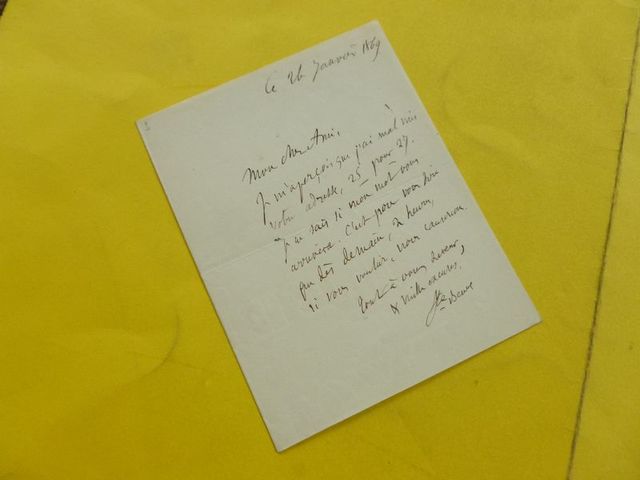 Ce 26 Janvier 1869
Mon cher Ami,
Je m'aperçois que j'ai mal mis
votre adresse, 25 pour 27.
Je ne sais si mon mot vous
arrivera. C'est pour vous dire
que dès demain, 2 heures,
si vous voulez, nous causerons.
Tout à vous
& mille excuses,
Ste Beuve